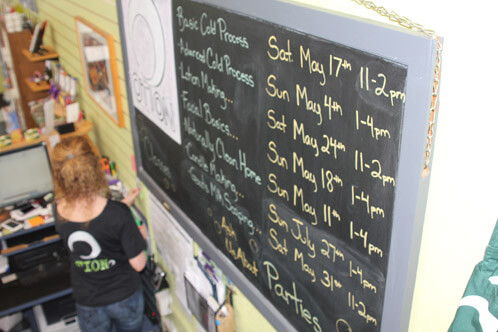 OTION
Basic Cold Process Sat. May 17th 11-2pm
Advanced Cold Process Sun May 4th 1-4pm
Lotion Making... Sat May 24th 11-2pm
Facial Basics... Sun May 18th 1-4pm
Naturally Clean Home Sun May 11th 1-4pm
Candle Making... Sun July 27th 1-4pm
Goat's Milk Soaping... Sat. May 31st 11-2pm
Ask
Us About
Parties
TION